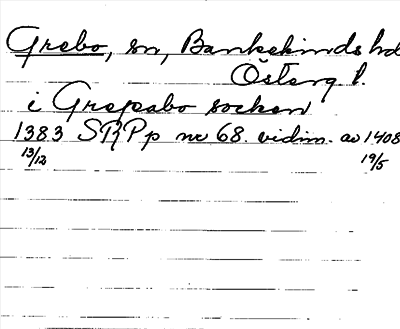 Grebo, sn, Bankekinds hd
Österg l.
i Grepabo socken
1383 SRPp nr 68. vidim. av 1408
13/12 19/5